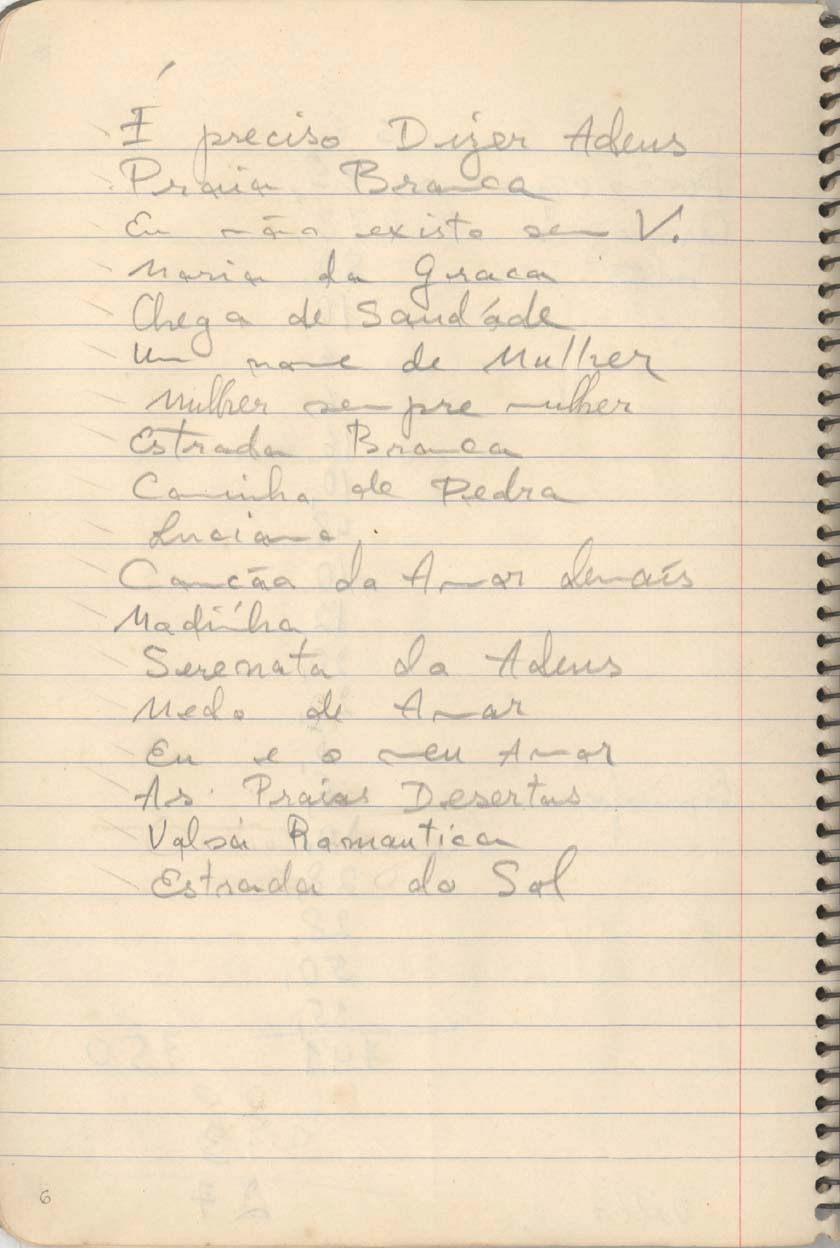 É preciso Dizer Adeus
Praia Branca
Eu não existo sem V.
Maria da Graça
Chega de Saudade
Um nome de Mulher
Mulher sempre mulher
Estrada Branca
Caminho de Pedra
Luciana
Canção do Amor demais
Modinha
Serenata do Adeus
Medo de Amar
Eu e o meu Amor
As Praias Desertas
Valsa Romantica
Estrada do Sol
6